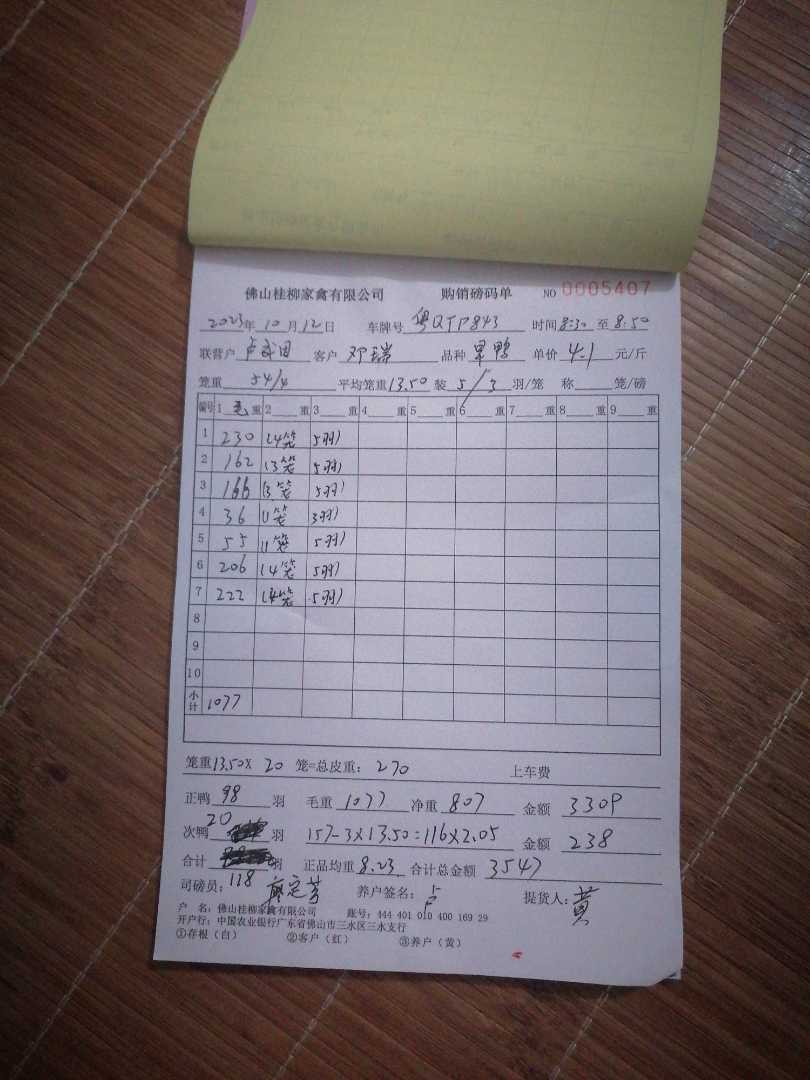 佛山桂柳家禽有限公司 购销磅码单 NO 0005407
2023年 10月 12日 车牌号 粤QTP843 时间 8:30 至 8:50
联营户 卢 田 客户 邓瑞 品种 旱鸭 单价 4.1 元/斤
笼重 54/4 平均笼重 13.50 装 5/3 羽/笼 称 笼/磅
编号 1 毛重 2 重 3 重 4 重 5 重 6 重 7 重 8 重 9 重
1 230 (4笼 5羽)
2 162 (3笼 5羽)
3 166 (3笼 5羽)
4 36 (1笼 3羽)
5 55 (1笼 5羽)
6 206 (4笼 5羽)
7 222 (4笼 5羽)
8
9
10
小计 1077
笼重 13.50 X 20 笼=总皮重: 270 上车费
正鸭 98 羽 毛重 1077 净重 807 金额 3309
次鸭 20 羽 157-3X13.50=116X2.05 金额 238
合计 118 羽 正品均重 8.23 合计总金额 3547
司磅员: 定芳 养户签名: 卢 提货人: 黄
户 名: 佛山桂柳家禽有限公司 账号: 444 401 010 400 169 29
开户行: 中国农业银行广东省佛山市三水区三水支行
①存根(白) ②客户(红) ③养户(黄)